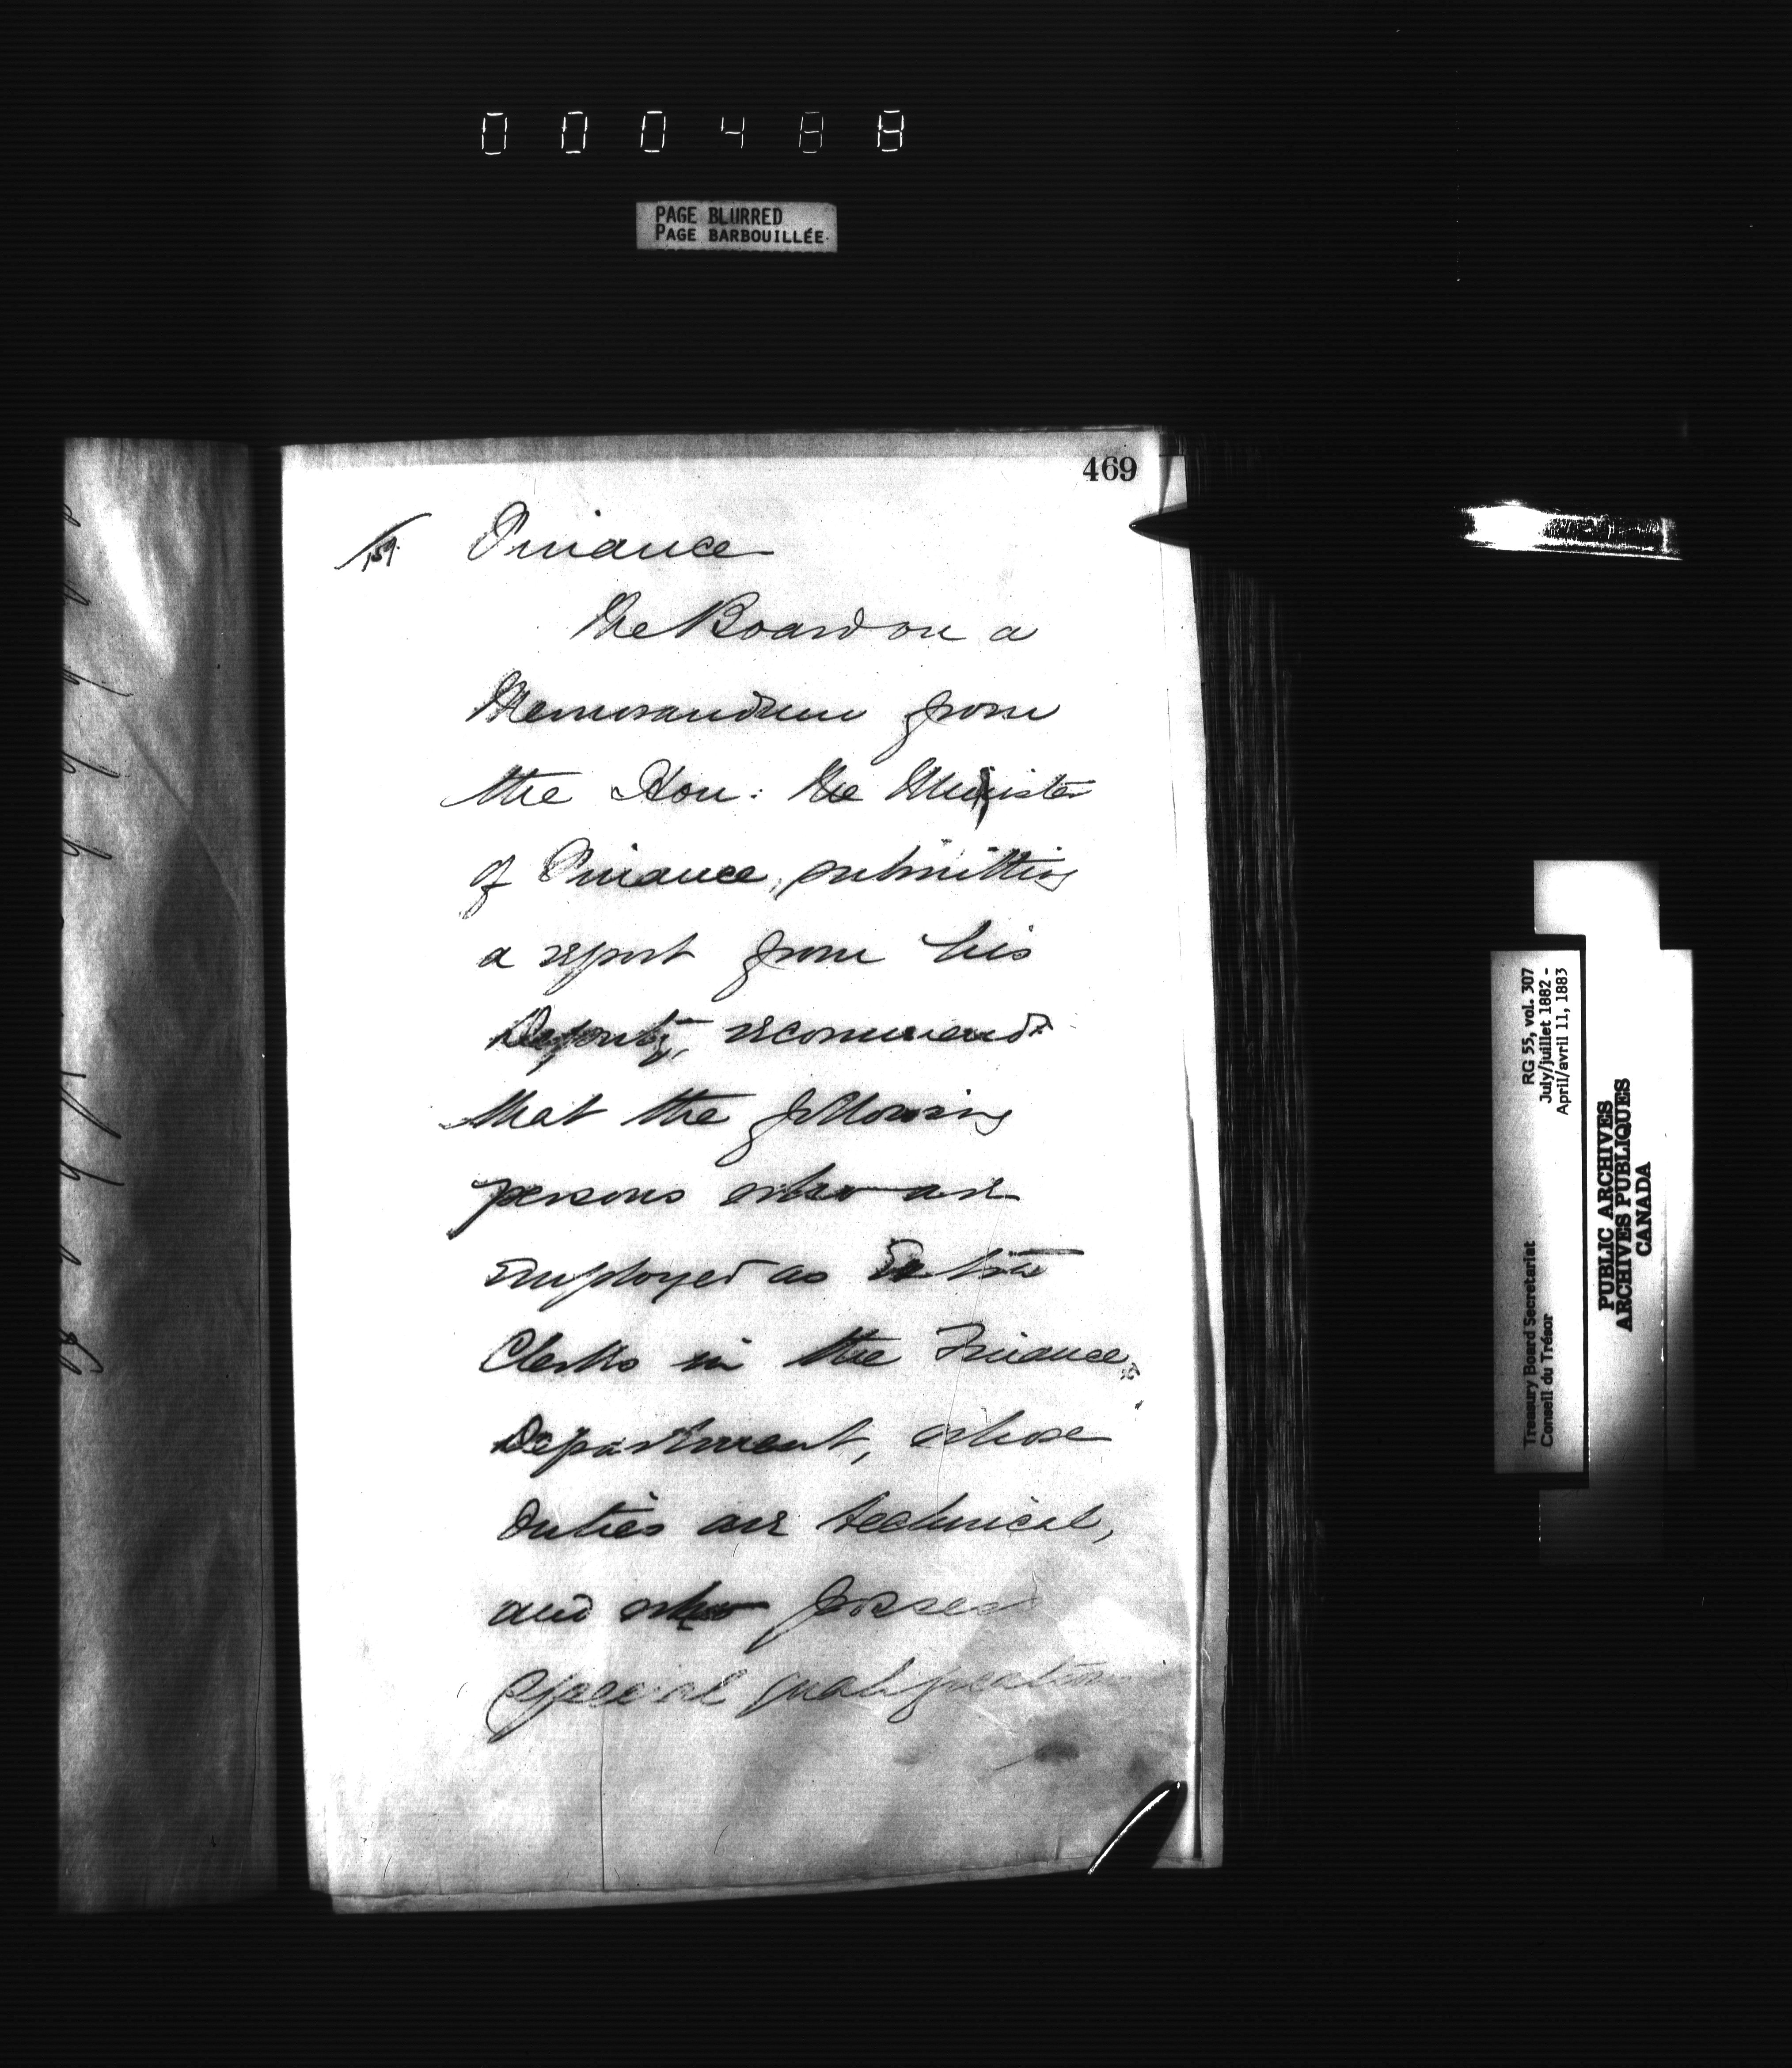 000488
PAGE BLURRED
PAGE BARBOUILLÉE
469
159 Finance
The Board on a
Memorandum from
the Hon: the Minister
of Finance, submitting
a report from his
Deputy, recommend
that the following
persons who are
employed as Extra
Clerks in the Finance
Department, whose
duties are technical,
and who possess
special qualifications
RG 55, vol. 307
July/juillet 1882 -
April/avril 11, 1883
Treasury Board Secretariat
Conseil du Trésor
PUBLIC ARCHIVES
ARCHIVES PUBLIQUES
CANADA